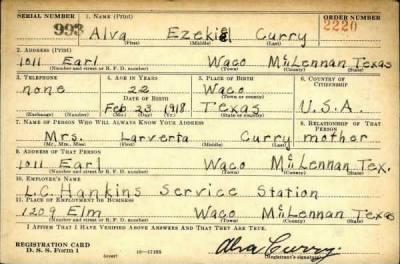 SERIAL NUMBER 1. NAME (Print) ORDER NUMBER
993 Alva Ezekiel Curry 2220
(First) (Middle) (Last)
2. ADDRESS (Print)
1011 Earl Waco McLennan Texas
(Number and street or R. F. D. number) (Town) (County) (State)
3. TELEPHONE 4. AGE IN YEARS 5. PLACE OF BIRTH 6. COUNTRY OF CITIZENSHIP
none 22 Waco
DATE OF BIRTH (Town or county)
Feb 23 1918 Texas U.S.A.
(Exchange) (Number) (Mo.) (Day) (Yr.) (State or country)
7. NAME OF PERSON WHO WILL ALWAYS KNOW YOUR ADDRESS 8. RELATIONSHIP OF THAT PERSON
Mrs. Larverta Curry mother
(Mr., Mrs., Miss) (First) (Middle) (Last)
9. ADDRESS OF THAT PERSON
1011 Earl Waco McLennan Tex.
(Number and street or R. F. D. number) (Town) (County) (State)
10. EMPLOYER'S NAME
L.C. Hankins Service Station
11. PLACE OF EMPLOYMENT OR BUSINESS
1209 Elm Waco McLennan Texas
(Number and street or R. F. D. number) (Town) (County) (State)
I AFFIRM THAT I HAVE VERIFIED ABOVE ANSWERS AND THAT THEY ARE TRUE.
REGISTRATION CARD
D. S. S. Form 1 16—17105 Alva Curry
(Registrant's signature)